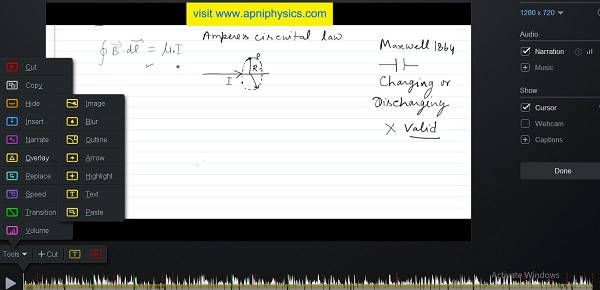 visit www.apniphysics.com
Amperes circuital law
∮ B⃗ · d⃗l = μ₀I
P
R
I
Maxwell 1864
Charging or
Discharging
X Valid
Cut
Copy
Hide
Insert
Narrate
Overlay
Replace
Speed
Transition
Volume
Image
Blur
Outline
Arrow
Highlight
Text
Paste
Tools
+ Cut
1280 x 720
Audio
Narration
+ Music
Show
Cursor
Webcam
+ Captions
Done
Activate Windows